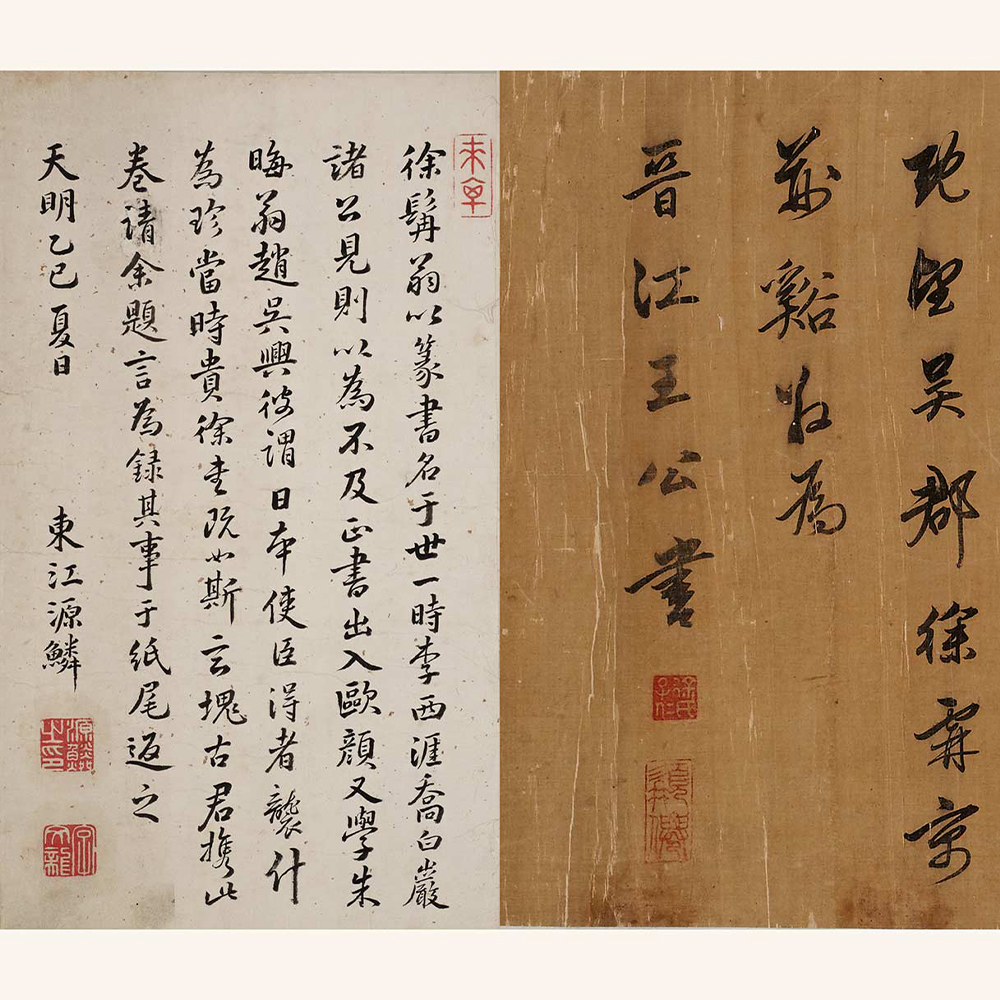 既望吴郡徐霖京
谿
為
晉江王公書
徐氏子仁
徐髯翁以篆書名于世一時李西涯喬白巖
諸公見則以為不及正書出入歐顔又學朱
晦翁趙吴興彼謂日本使臣得者襲什
為珍當時貴徐書既如斯云塊古君携此
卷請余題言為録其事于紙尾返之
天明乙巳夏日
東江源鱗
源鱗之印